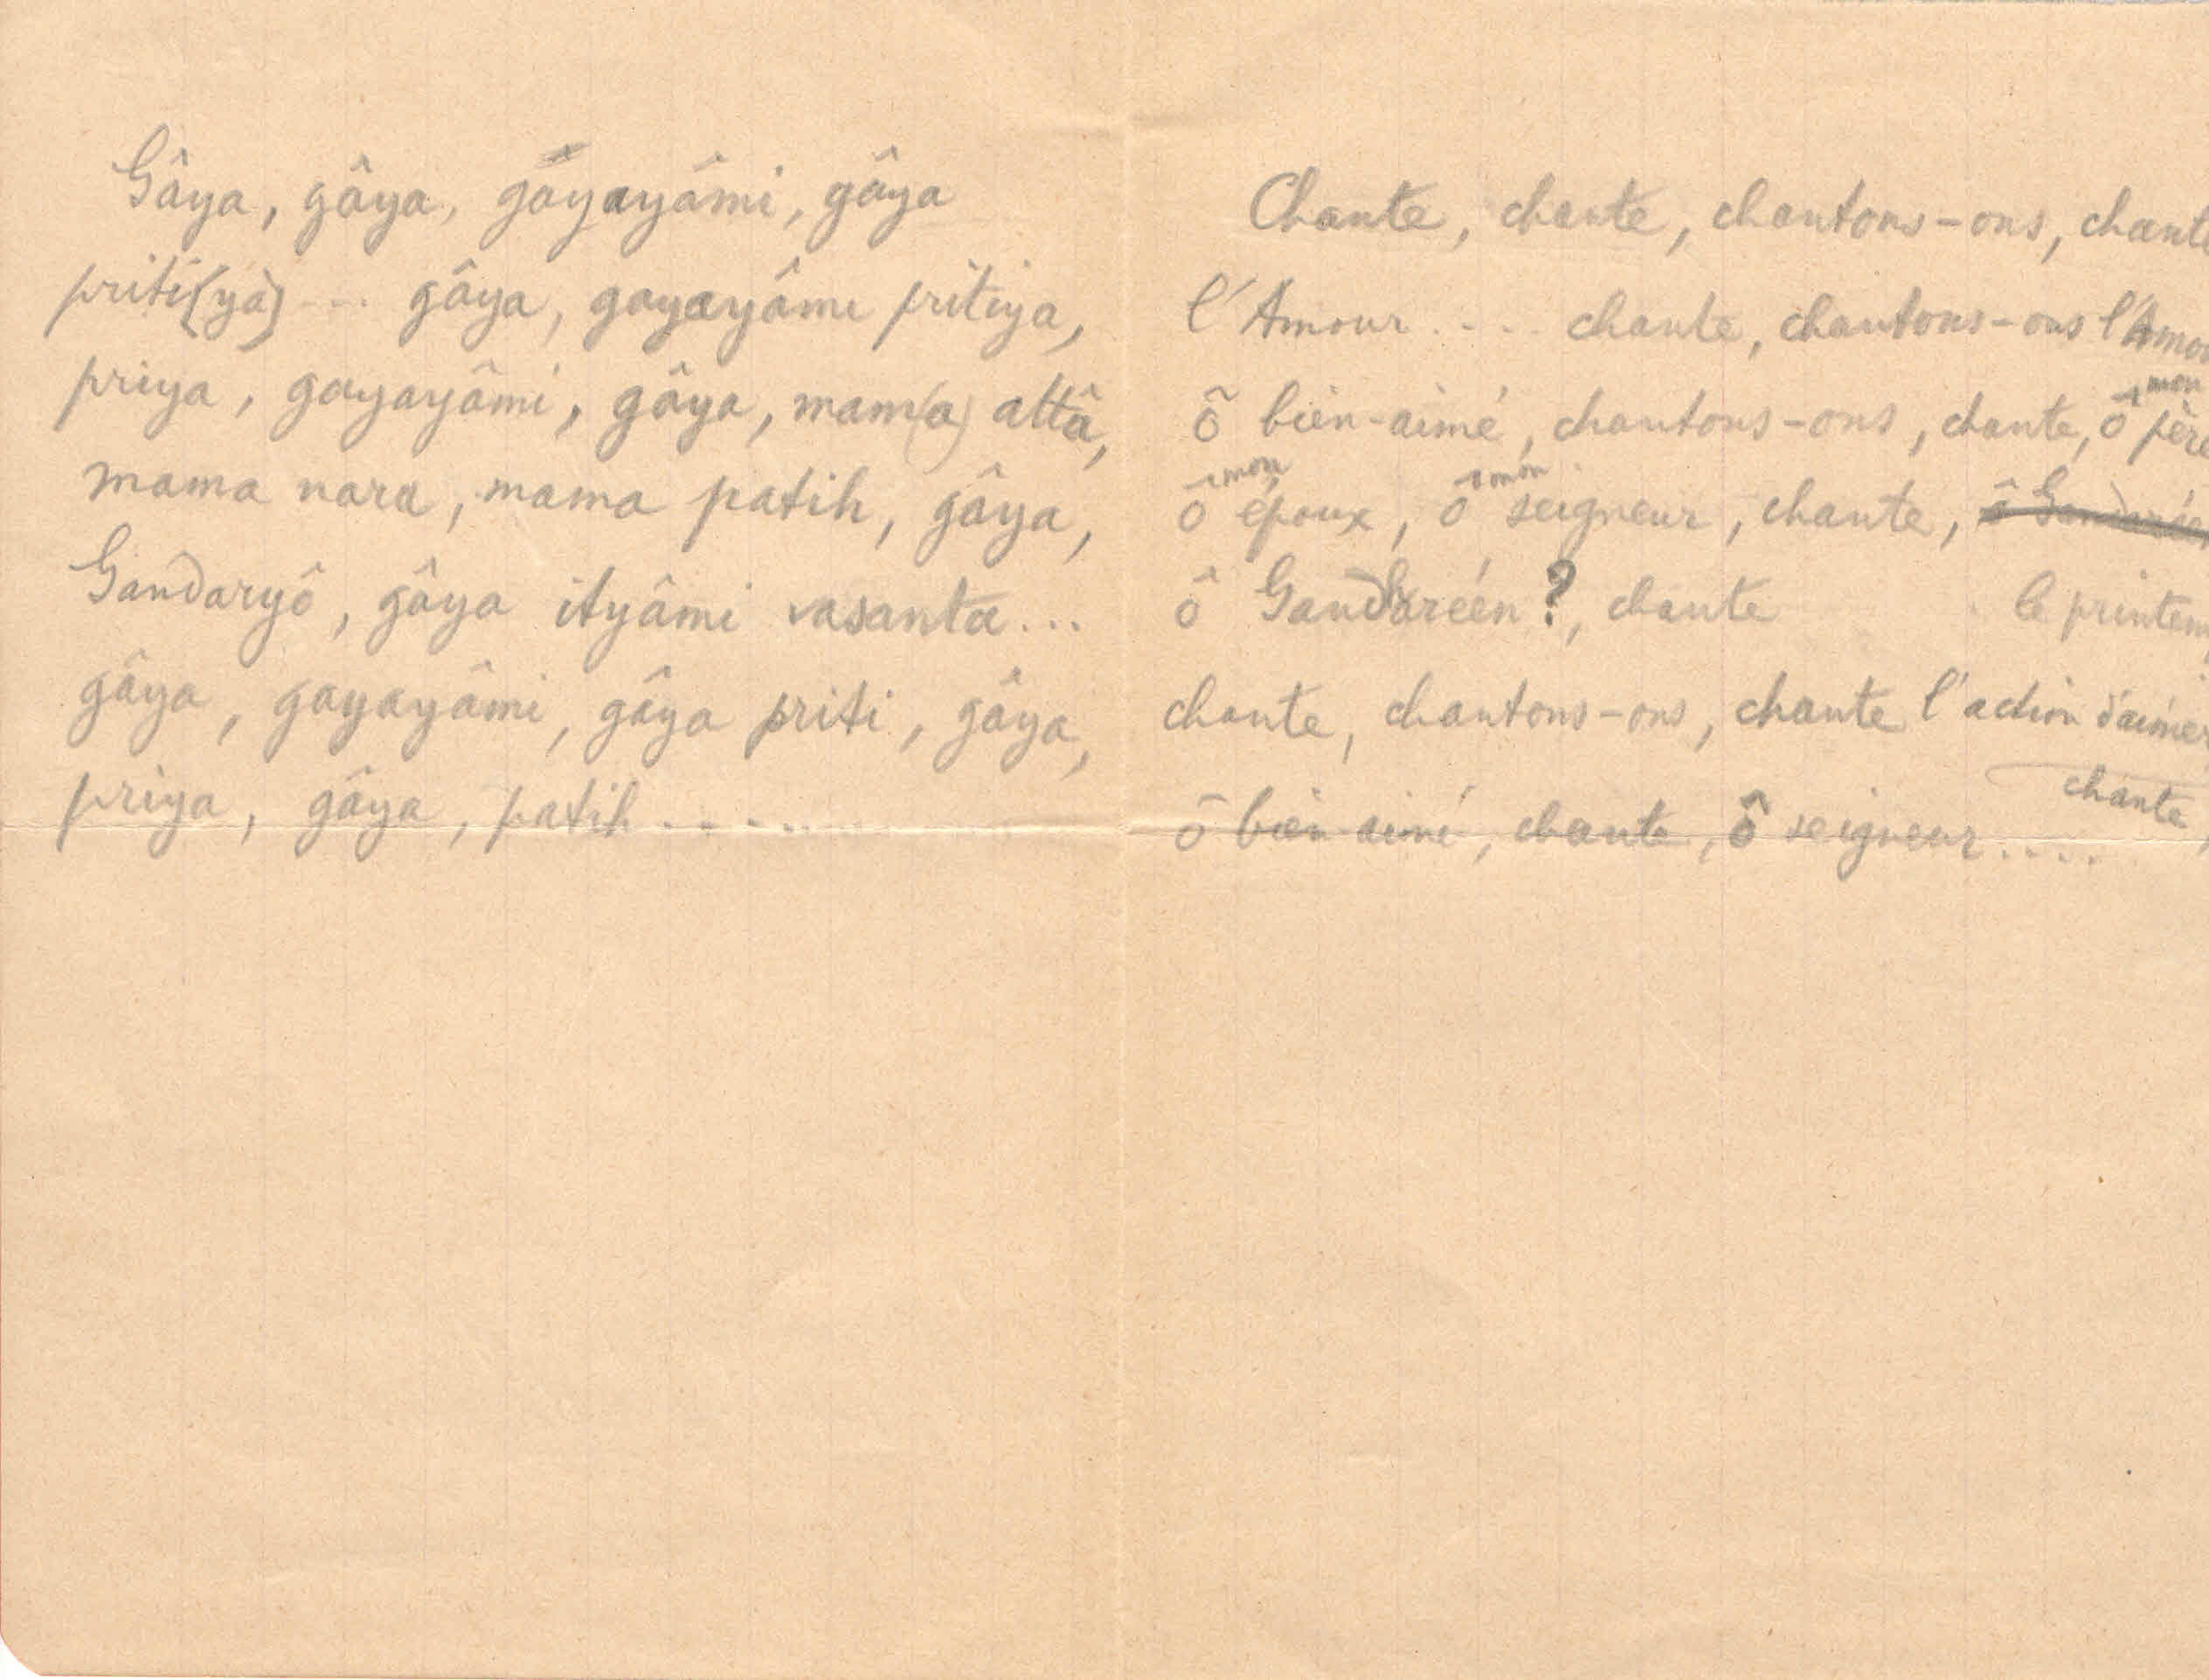 Gâya, gâya, gâyayâmi, gâya
priti(ya) --- gâya, gayayâmi pritiya,
priya, gayayâmi, gâya, mam(a) attâ,
mama nara, mama patih, gâya,
Gandaryô, gâya ityâmi vasanta...
gâya, gayayâmi, gâya priti, gâya,
priya, gâya, patih.....
Chante, chante, chantons-ons, chante
l'Amour.... chante, chantons-ons l'Amou
ô bien-aimé, chantons-ons, chante, ô mon père
ô mon époux, ô mon seigneur, chante, ô Gandaréen
ô Gandharéen?, chante le printem
chante, chantons-ons, chante l'action d'aimer
chante,
ô bien-aimé, chante, ô seigneur....